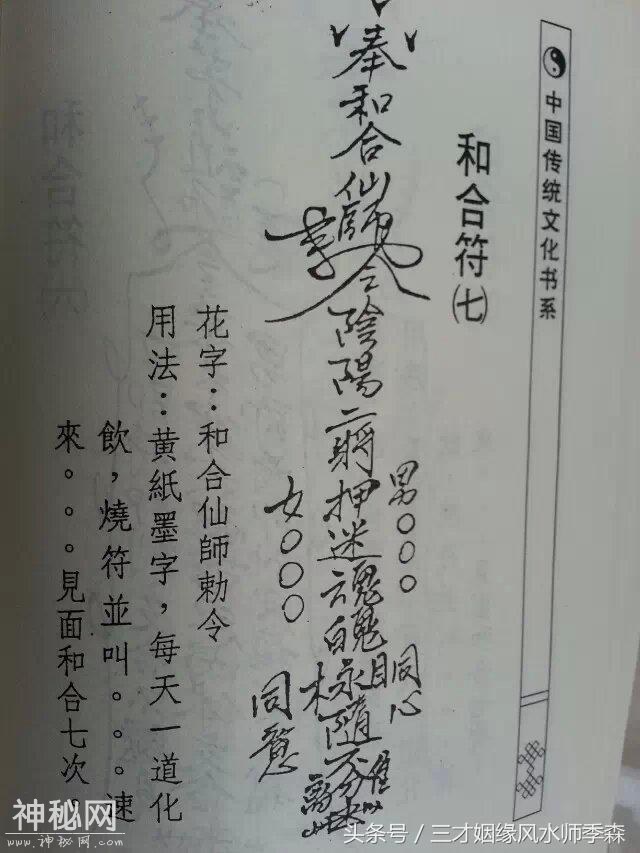 中国传统文化书系
和合符(七)
男○○○ 同心
奉和合仙師令陰陽二將押迷魂魄 隨不分
女○○○ 同意
花字：和合仙師勅令
用法：黄紙墨字，每天一道化
飲，燒符並叫。。。速
來。。。見面和合七次。
神秘网
头条号／三才姻缘风水师季森